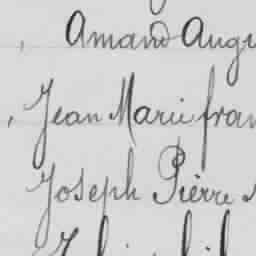 Amand Augu
, Jean Marie fran
Joseph Pierre